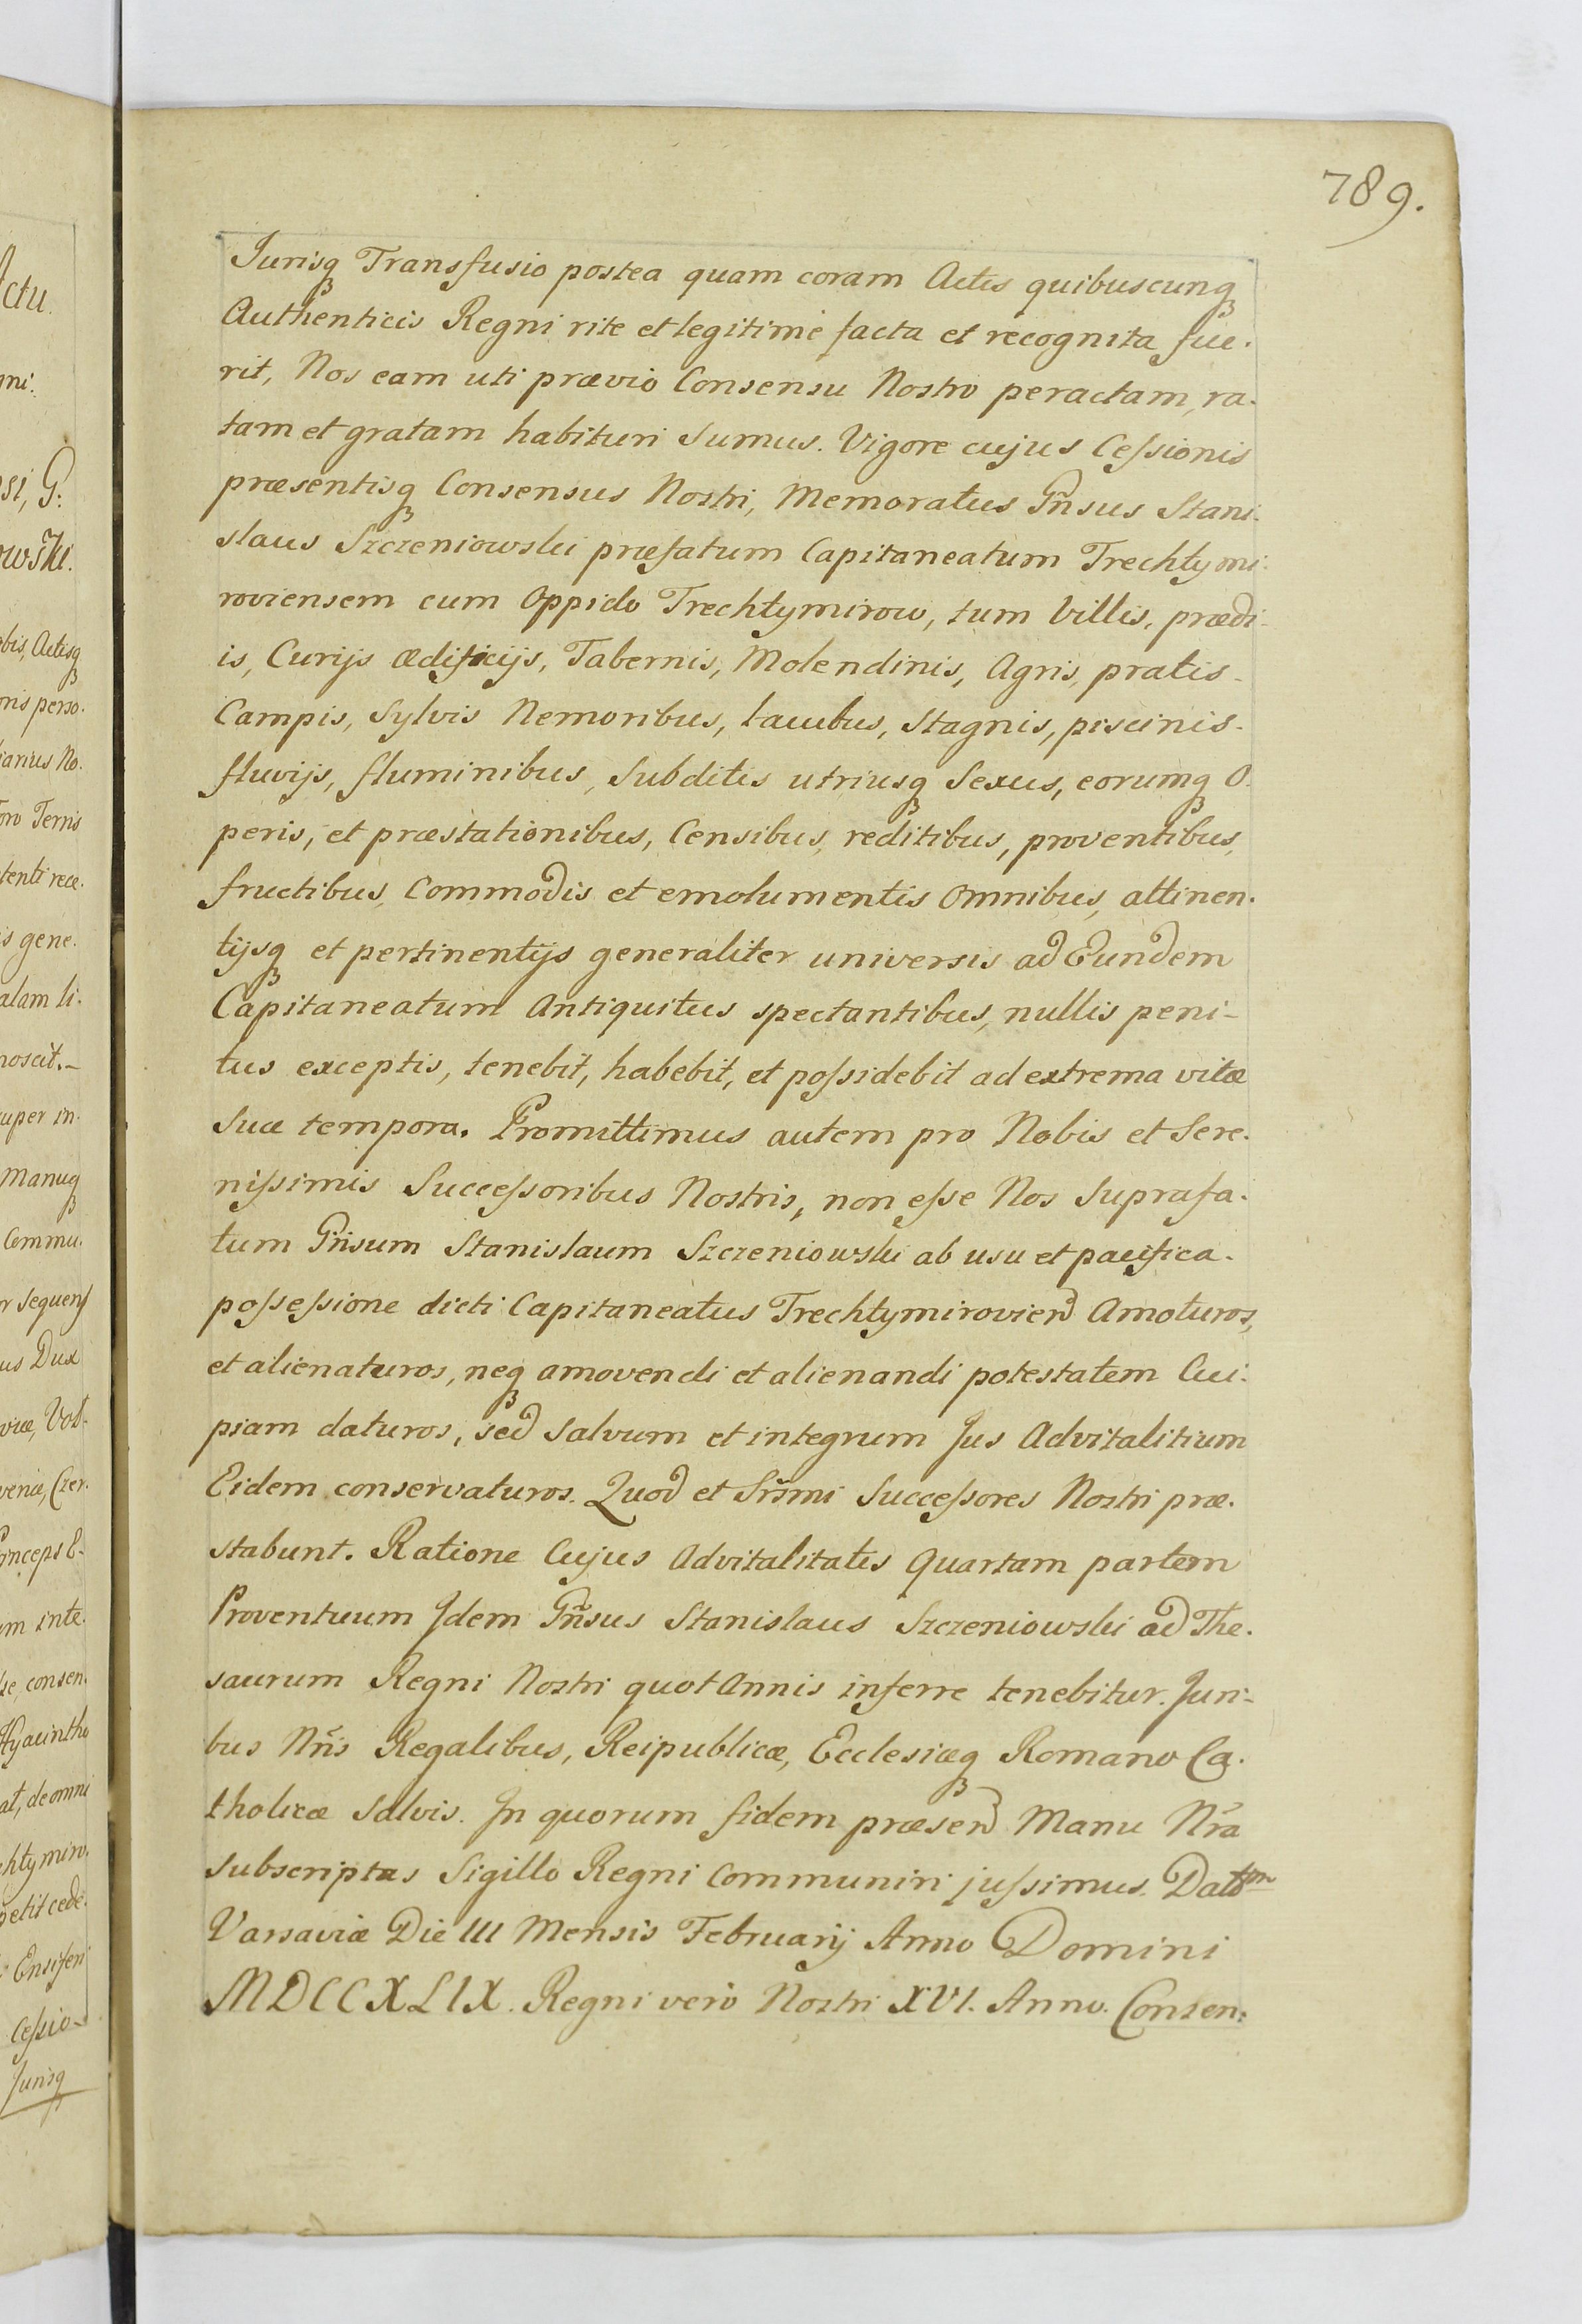 789.
Jurisq3 Transfusio postea quam coram Actis quibuscunq3
Authenticis Regni rite et legitime facta et recognita fue-
rit, Nos eam uti prævio Consensu Nostro peractam, ra-
tam et gratam habituri sumus. Vigore cujus Cessionis
præsentisq3 Consensus Nostri, Memoratus Gñsus Stani-
slaus Szczeniowski præfatum Capitaneatum Trechtymi-
roviensem cum Oppido Trechtymirow, tum Villis, prædi-
is, Curijs ædificijs, Tabernis, Molendinis, Agris, pratis-
Campis, Sylvis Nemoribus, lacubus, Stagnis, piscinis-
fluvijs, fluminibus, Subditis utriusq3 Sexus, eorumq3 O-
peris, et præstationibus, Censibus, reditibus, proventibus,
fructibus, Commodis et emolumentis omnibus, attinen-
tijsq3 et pertinentijs generaliter universis ad Eundem
Capitaneatum Antiquitus spectantibus, nullis peni-
tus exceptis, tenebit, habebit, et possidebit ad extrema vitæ
suæ tempora. Promittimus autem pro Nobis et Sere-
nissimis Successoribus Nostris, non esse Nos suprafa-
tum Gñsum Stanislaum Szczeniowski ab usu et pacifica-
possessione dicti Capitaneatus Trechtymirovien Amoturos,
et alienaturos, neq3 amovendi et alienandi potestatem Cui-
piam daturos, sed salvum et integrum Jus Advitalitium
Eidem conservaturos. Quod et Srsmi Successores Nostri præ-
stabunt. Ratione Cujus Advitalitatis Quartam partem
Proventuum Jdem Gñsus Stanislaus Szczeniowski ad The-
saurum Regni Nostri quot Annis inferre tenebitur. Juri-
bus Nris Regalibus, Reipublicæ, Ecclesiæq3 Romano Ca-
tholicæ salvis. Jn quorum fidem præsen Manu Nra
subscriptas Sigillo Regni Communiri jussimus. Dattm
Varsaviæ Die III Mensis Februarij Anno Domini
MDCCXLIX. Regni vero Nostri XVI. Anno. Consen: